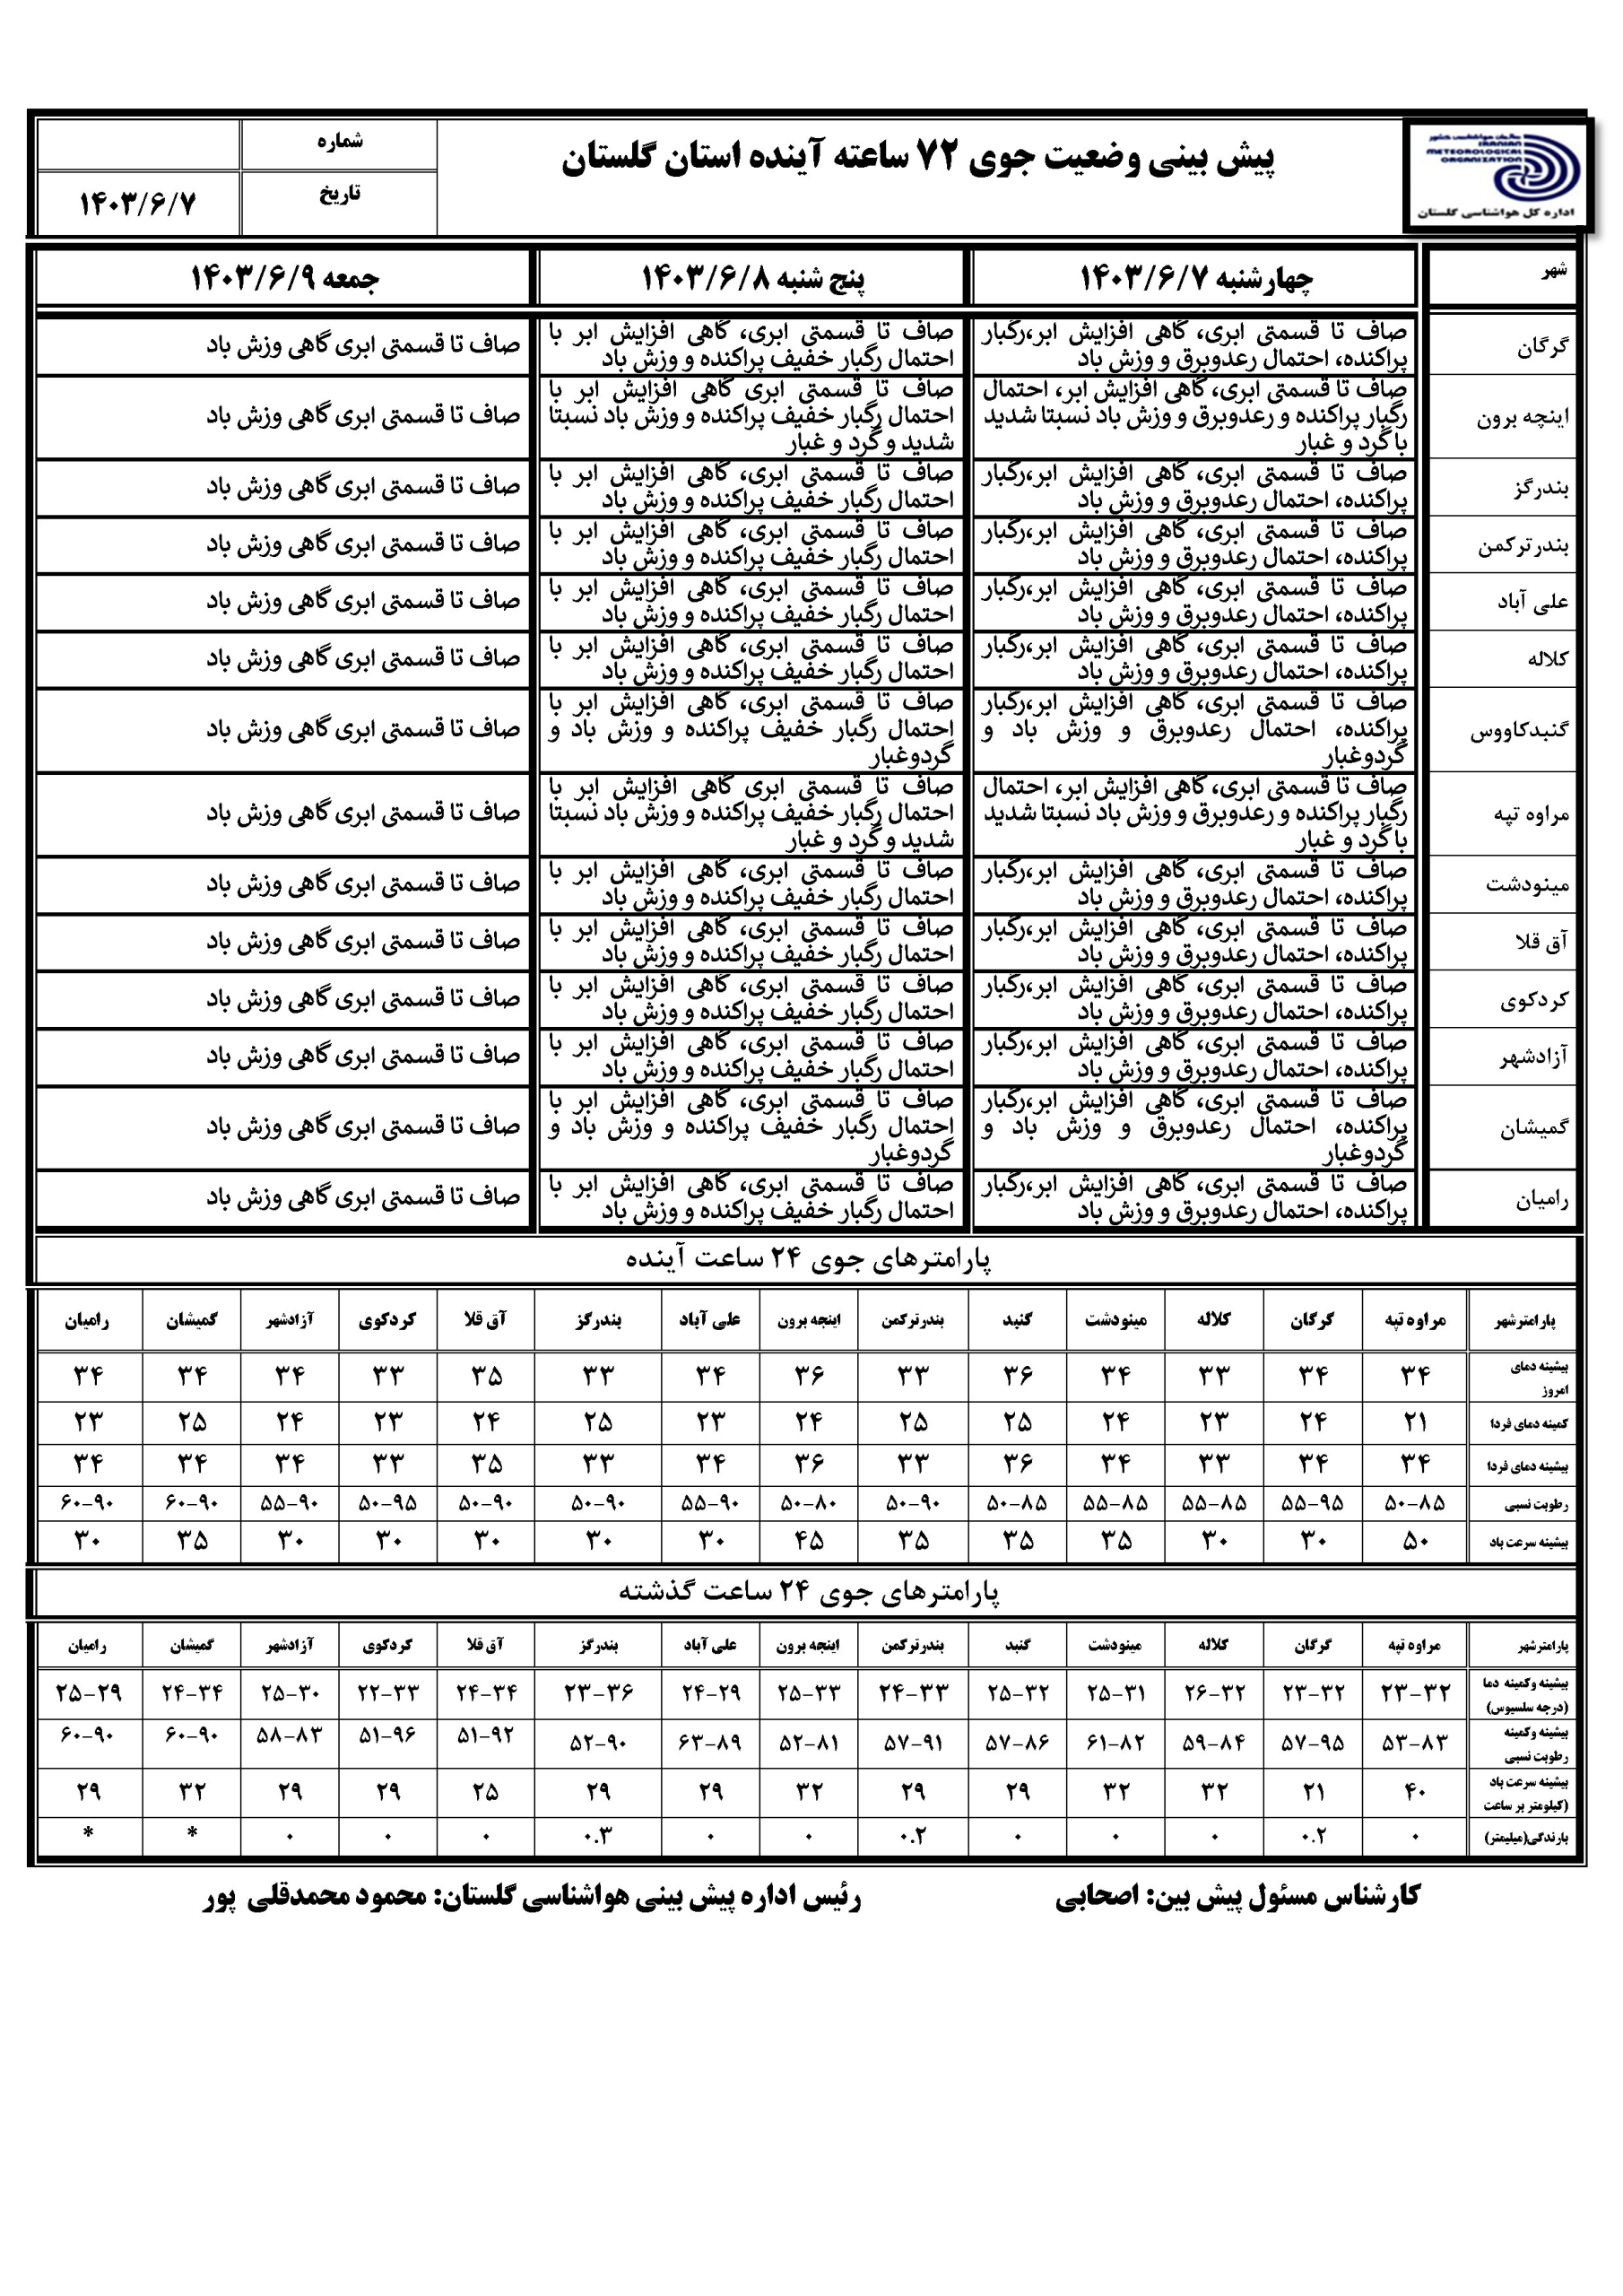 سازمان هواشناسی کشور
IRANIAN
METEOROLOGICAL
ORGANIZATION
اداره کل هواشناسی گلستان
پیش بینی وضعیت جوی ۷۲ ساعته آینده استان گلستان
شماره
تاریخ ۱۴۰۳/۶/۷
شهر چهارشنبه ۱۴۰۳/۶/۷ پنج شنبه ۱۴۰۳/۶/۸ جمعه ۱۴۰۳/۶/۹
گرگان
صاف تا قسمتی ابری، گاهی افزایش ابر،رگبار
پراکنده، احتمال رعدوبرق و وزش باد
صاف تا قسمتی ابری، گاهی افزایش ابر با
احتمال رگبار خفیف پراکنده و وزش باد
صاف تا قسمتی ابری گاهی وزش باد
اینچه برون
صاف تا قسمتی ابری، گاهی افزایش ابر، احتمال
رگبار پراکنده و رعدوبرق و وزش باد نسبتا شدید
با گرد و غبار
صاف تا قسمتی ابری گاهی افزایش ابر با
احتمال رگبار خفیف پراکنده و وزش باد نسبتا
شدید و گرد و غبار
صاف تا قسمتی ابری گاهی وزش باد
بندرگز
صاف تا قسمتی ابری، گاهی افزایش ابر،رگبار
پراکنده، احتمال رعدوبرق و وزش باد
صاف تا قسمتی ابری، گاهی افزایش ابر با
احتمال رگبار خفیف پراکنده و وزش باد
صاف تا قسمتی ابری گاهی وزش باد
بندرترکمن
صاف تا قسمتی ابری، گاهی افزایش ابر،رگبار
پراکنده، احتمال رعدوبرق و وزش باد
صاف تا قسمتی ابری، گاهی افزایش ابر با
احتمال رگبار خفیف پراکنده و وزش باد
صاف تا قسمتی ابری گاهی وزش باد
علی آباد
صاف تا قسمتی ابری، گاهی افزایش ابر،رگبار
پراکنده، احتمال رعدوبرق و وزش باد
صاف تا قسمتی ابری، گاهی افزایش ابر با
احتمال رگبار خفیف پراکنده و وزش باد
صاف تا قسمتی ابری گاهی وزش باد
کلاله
صاف تا قسمتی ابری، گاهی افزایش ابر،رگبار
پراکنده، احتمال رعدوبرق و وزش باد
صاف تا قسمتی ابری، گاهی افزایش ابر با
احتمال رگبار خفیف پراکنده و وزش باد
صاف تا قسمتی ابری گاهی وزش باد
گنبدکاووس
صاف تا قسمتی ابری، گاهی افزایش ابر،رگبار
پراکنده، احتمال رعدوبرق و وزش باد و
گردوغبار
صاف تا قسمتی ابری، گاهی افزایش ابر با
احتمال رگبار خفیف پراکنده و وزش باد و
گردوغبار
صاف تا قسمتی ابری گاهی وزش باد
مراوه تپه
صاف تا قسمتی ابری، گاهی افزایش ابر، احتمال
رگبار پراکنده و رعدوبرق و وزش باد نسبتا شدید
با گرد و غبار
صاف تا قسمتی ابری گاهی افزایش ابر با
احتمال رگبار خفیف پراکنده و وزش باد نسبتا
شدید و گرد و غبار
صاف تا قسمتی ابری گاهی وزش باد
مینودشت
صاف تا قسمتی ابری، گاهی افزایش ابر،رگبار
پراکنده، احتمال رعدوبرق و وزش باد
صاف تا قسمتی ابری، گاهی افزایش ابر با
احتمال رگبار خفیف پراکنده و وزش باد
صاف تا قسمتی ابری گاهی وزش باد
آق قلا
صاف تا قسمتی ابری، گاهی افزایش ابر،رگبار
پراکنده، احتمال رعدوبرق و وزش باد
صاف تا قسمتی ابری، گاهی افزایش ابر با
احتمال رگبار خفیف پراکنده و وزش باد
صاف تا قسمتی ابری گاهی وزش باد
کردکوی
صاف تا قسمتی ابری، گاهی افزایش ابر،رگبار
پراکنده، احتمال رعدوبرق و وزش باد
صاف تا قسمتی ابری، گاهی افزایش ابر با
احتمال رگبار خفیف پراکنده و وزش باد
صاف تا قسمتی ابری گاهی وزش باد
آزادشهر
صاف تا قسمتی ابری، گاهی افزایش ابر،رگبار
پراکنده، احتمال رعدوبرق و وزش باد
صاف تا قسمتی ابری، گاهی افزایش ابر با
احتمال رگبار خفیف پراکنده و وزش باد
صاف تا قسمتی ابری گاهی وزش باد
گمیشان
صاف تا قسمتی ابری، گاهی افزایش ابر،رگبار
پراکنده، احتمال رعدوبرق و وزش باد و
گردوغبار
صاف تا قسمتی ابری، گاهی افزایش ابر با
احتمال رگبار خفیف پراکنده و وزش باد و
گردوغبار
صاف تا قسمتی ابری گاهی وزش باد
رامیان
صاف تا قسمتی ابری، گاهی افزایش ابر،رگبار
پراکنده، احتمال رعدوبرق و وزش باد
صاف تا قسمتی ابری، گاهی افزایش ابر با
احتمال رگبار خفیف پراکنده و وزش باد
صاف تا قسمتی ابری گاهی وزش باد
پارامترهای جوی ۲۴ ساعت آینده
پارامترشهر مراوه تپه گرگان کلاله مینودشت گنبد بندرترکمن اینچه برون علی آباد بندرگز آق قلا کردکوی آزادشهر گمیشان رامیان
بیشینه دمای
امروز
۳۴ ۳۴ ۳۳ ۳۴ ۳۶ ۳۳ ۳۶ ۳۴ ۳۳ ۳۵ ۳۳ ۳۴ ۳۴ ۳۴
کمینه دمای فردا ۲۱ ۲۴ ۲۳ ۲۴ ۲۵ ۲۵ ۲۴ ۲۳ ۲۵ ۲۴ ۲۳ ۲۴ ۲۵ ۲۳
بیشینه دمای فردا ۳۴ ۳۴ ۳۳ ۳۴ ۳۶ ۳۳ ۳۶ ۳۴ ۳۳ ۳۵ ۳۳ ۳۴ ۳۴ ۳۴
رطوبت نسبی ۵۰-۸۵ ۵۵-۹۵ ۵۵-۸۵ ۵۵-۸۵ ۵۰-۸۵ ۵۰-۹۰ ۵۰-۸۰ ۵۵-۹۰ ۵۰-۹۰ ۵۰-۹۰ ۵۰-۹۵ ۵۵-۹۰ ۶۰-۹۰ ۶۰-۹۰
بیشینه سرعت باد ۵۰ ۳۰ ۳۰ ۳۵ ۳۵ ۳۵ ۴۵ ۳۰ ۳۰ ۳۰ ۳۰ ۳۰ ۳۵ ۳۰
پارامترهای جوی ۲۴ ساعت گذشته
پارامترشهر مراوه تپه گرگان کلاله مینودشت گنبد بندرترکمن اینجه برون علی آباد بندرگز آق قلا کردکوی آزادشهر گمیشان رامیان
بیشینه وکمینه دما
(درجه سلسیوس)
۲۳-۳۲ ۲۳-۳۲ ۲۶-۳۲ ۲۵-۳۱ ۲۵-۳۲ ۲۴-۳۳ ۲۵-۳۳ ۲۴-۲۹ ۲۳-۳۶ ۲۴-۳۴ ۲۲-۳۳ ۲۵-۳۰ ۲۴-۳۴ ۲۵-۲۹
بیشینه وکمینه
رطوبت نسبی
۵۳-۸۳ ۵۷-۹۵ ۵۹-۸۴ ۶۱-۸۲ ۵۷-۸۶ ۵۷-۹۱ ۵۲-۸۱ ۶۳-۸۹ ۵۲-۹۰ ۵۱-۹۲ ۵۱-۹۶ ۵۸-۸۳ ۶۰-۹۰ ۶۰-۹۰
بیشینه سرعت باد
(کیلومتر بر ساعت
۴۰ ۲۱ ۳۲ ۳۲ ۲۹ ۲۹ ۳۲ ۲۹ ۲۹ ۲۵ ۲۹ ۲۹ ۳۲ ۲۹
بارندگی(میلیمتر) ۰ ۰.۲ ۰ ۰ ۰ ۰.۲ ۰ ۰ ۰.۳ ۰ ۰ ۰ * *
کارشناس مسئول پیش بین: اصحابی
رئیس اداره پیش بینی هواشناسی گلستان: محمود محمدقلی پور